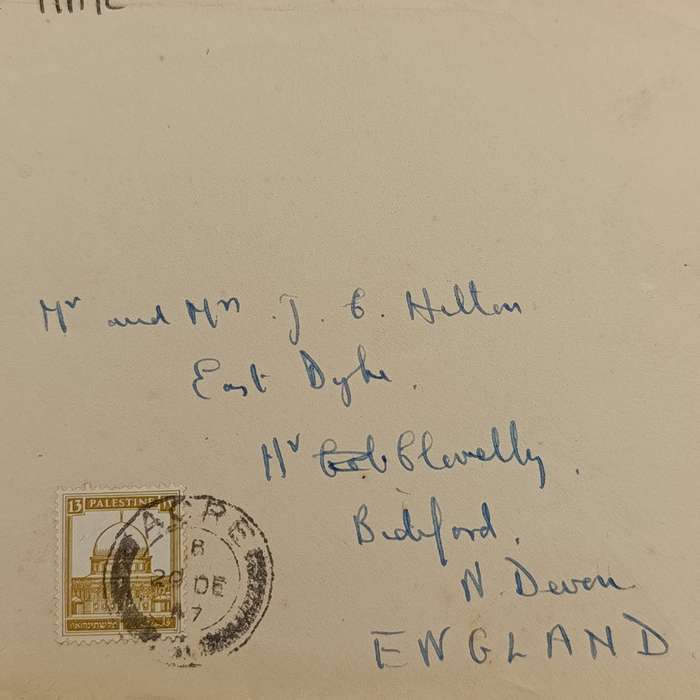 Mr and Mrs J. C. Hilton
East Dyke.
Nr Clovelly.
Bideford.
N Devon
ENGLAND
13 PALESTINE 13
ACRE
B
20 DE
47